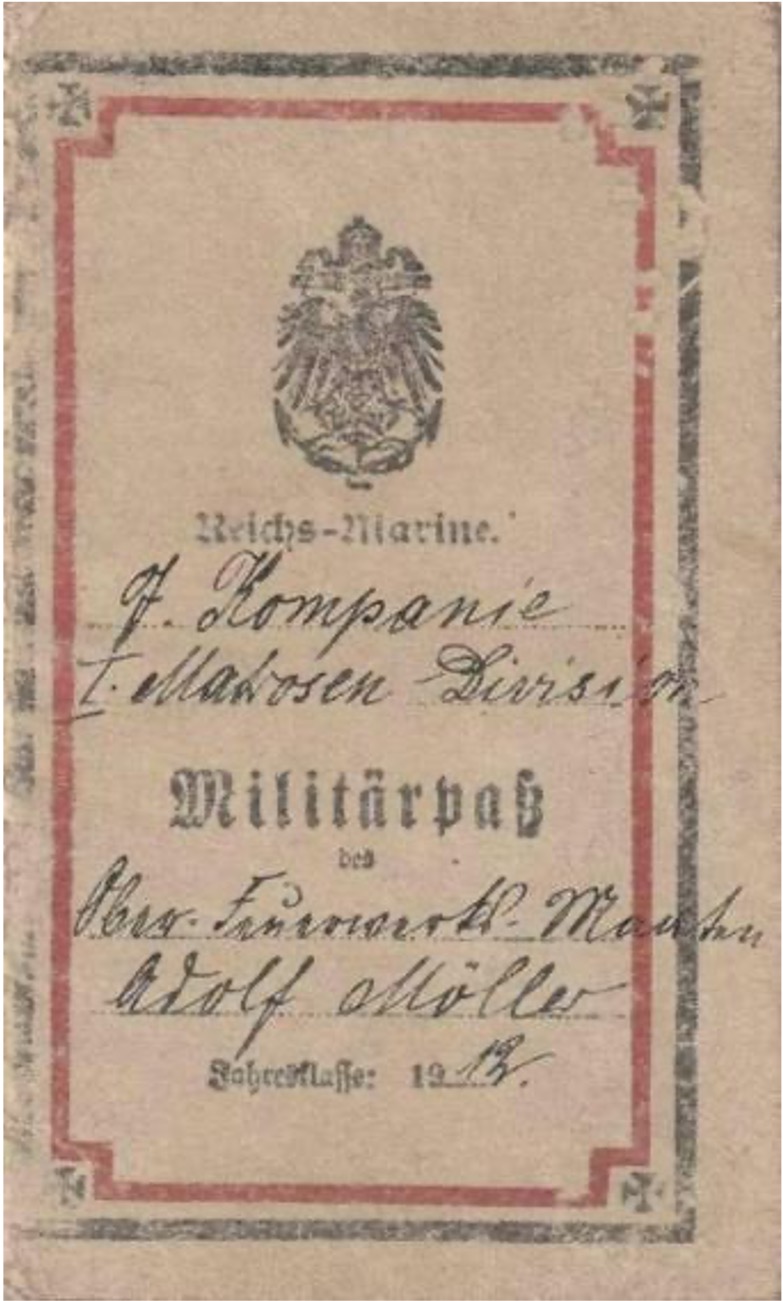 Reichs-Marine.
7. Kompanie
I. Matrosen-Division
Militärpaß
des
Ober-Feuerwerks-Maaten
Adolf Möller
Jahresklasse: 1912.